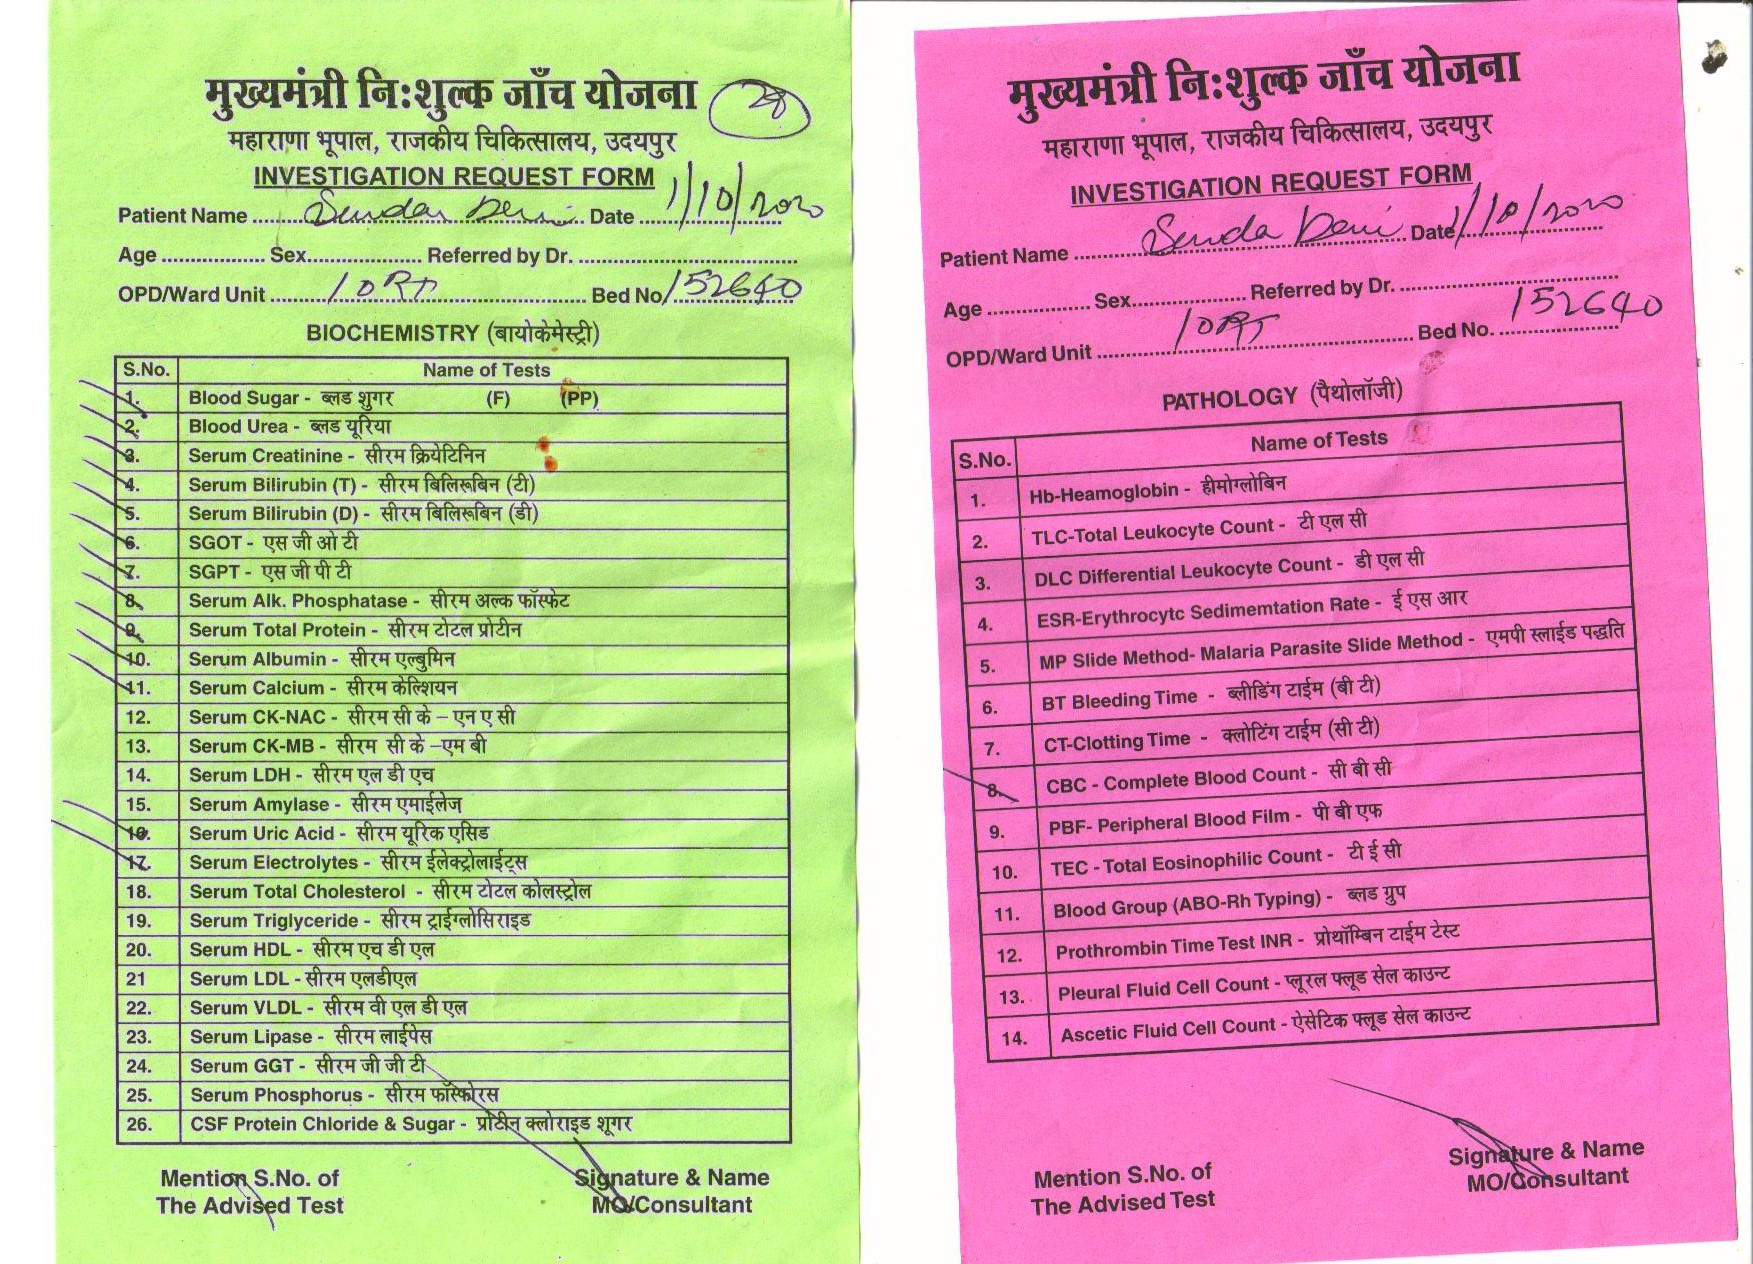 मुख्यमंत्री नि:शुल्क जाँच योजना 28
महाराणा भूपाल, राजकीय चिकित्सालय, उदयपुर
INVESTIGATION REQUEST FORM
Patient Name Sundar Devi Date 1/10/2020
Age Sex Referred by Dr.
OPD/Ward Unit Bed No 152640
BIOCHEMISTRY (बायोकेमेस्ट्री)
S.No. Name of Tests
1. Blood Sugar - ब्लड शुगर (F) (PP)
2. Blood Urea - ब्लड यूरिया
3. Serum Creatinine - सीरम क्रियेटिनिन
4. Serum Bilirubin (T) - सीरम बिलिरूबिन (टी)
5. Serum Bilirubin (D) - सीरम बिलिरूबिन (डी)
6. SGOT - एस जी ओ टी
7. SGPT - एस जी पी टी
8. Serum Alk. Phosphatase - सीरम अल्क फॉस्फेट
9. Serum Total Protein - सीरम टोटल प्रोटीन
10. Serum Albumin - सीरम एल्बुमिन
11. Serum Calcium - सीरम केल्शियन
12. Serum CK-NAC - सीरम सी के – एन ए सी
13. Serum CK-MB - सीरम सी के –एम बी
14. Serum LDH - सीरम एल डी एच
15. Serum Amylase - सीरम एमाईलेज
16. Serum Uric Acid - सीरम यूरिक एसिड
17. Serum Electrolytes - सीरम ईलेक्ट्रोलाईट्स
18. Serum Total Cholesterol - सीरम टोटल कोलस्ट्रोल
19. Serum Triglyceride - सीरम ट्राईग्लोसिराइड
20. Serum HDL - सीरम एच डी एल
21 Serum LDL - सीरम एलडीएल
22. Serum VLDL - सीरम वी एल डी एल
23. Serum Lipase - सीरम लाईपेस
24. Serum GGT - सीरम जी जी टी
25. Serum Phosphorus - सीरम फॉस्फोरस
26. CSF Protein Chloride & Sugar - प्रोटीन क्लोराइड शूगर
Mention S.No. of
The Advised Test
Signature & Name
MO/Consultant
मुख्यमंत्री नि:शुल्क जाँच योजना
महाराणा भूपाल, राजकीय चिकित्सालय, उदयपुर
INVESTIGATION REQUEST FORM
Patient Name Sunda Devi Date 1/10/2020
Age Sex Referred by Dr.
OPD/Ward Unit Bed No. 152640
PATHOLOGY (पैथोलॉजी)
S.No. Name of Tests
1. Hb-Heamoglobin - हीमोग्लोबिन
2. TLC-Total Leukocyte Count - टी एल सी
3. DLC Differential Leukocyte Count - डी एल सी
4. ESR-Erythrocytc Sedimemtation Rate - ई एस आर
5. MP Slide Method- Malaria Parasite Slide Method - एमपी स्लाईड पद्धति
6. BT Bleeding Time - ब्लीडिंग टाईम (बी टी)
7. CT-Clotting Time - क्लोटिंग टाईम (सी टी)
8. CBC - Complete Blood Count - सी बी सी
9. PBF- Peripheral Blood Film - पी बी एफ
10. TEC - Total Eosinophilic Count - टी ई सी
11. Blood Group (ABO-Rh Typing) - ब्लड ग्रुप
12. Prothrombin Time Test INR - प्रोथॉम्बिन टाईम टेस्ट
13. Pleural Fluid Cell Count - प्लूरल फ्लूड सेल काउन्ट
14. Ascetic Fluid Cell Count - ऐसेटिक फ्लूड सेल काउन्ट
Mention S.No. of
The Advised Test
Signature & Name
MO/Consultant